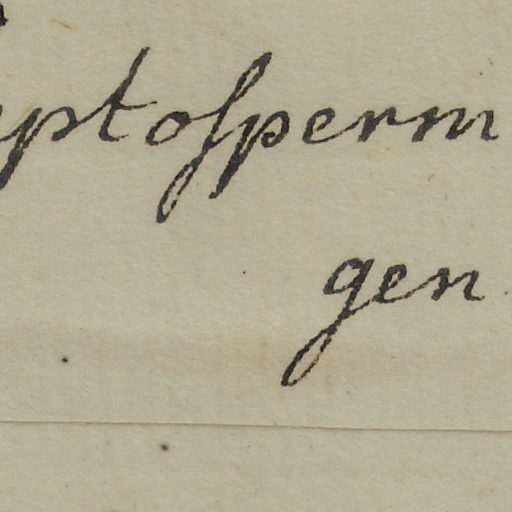 eptoſperm
gen